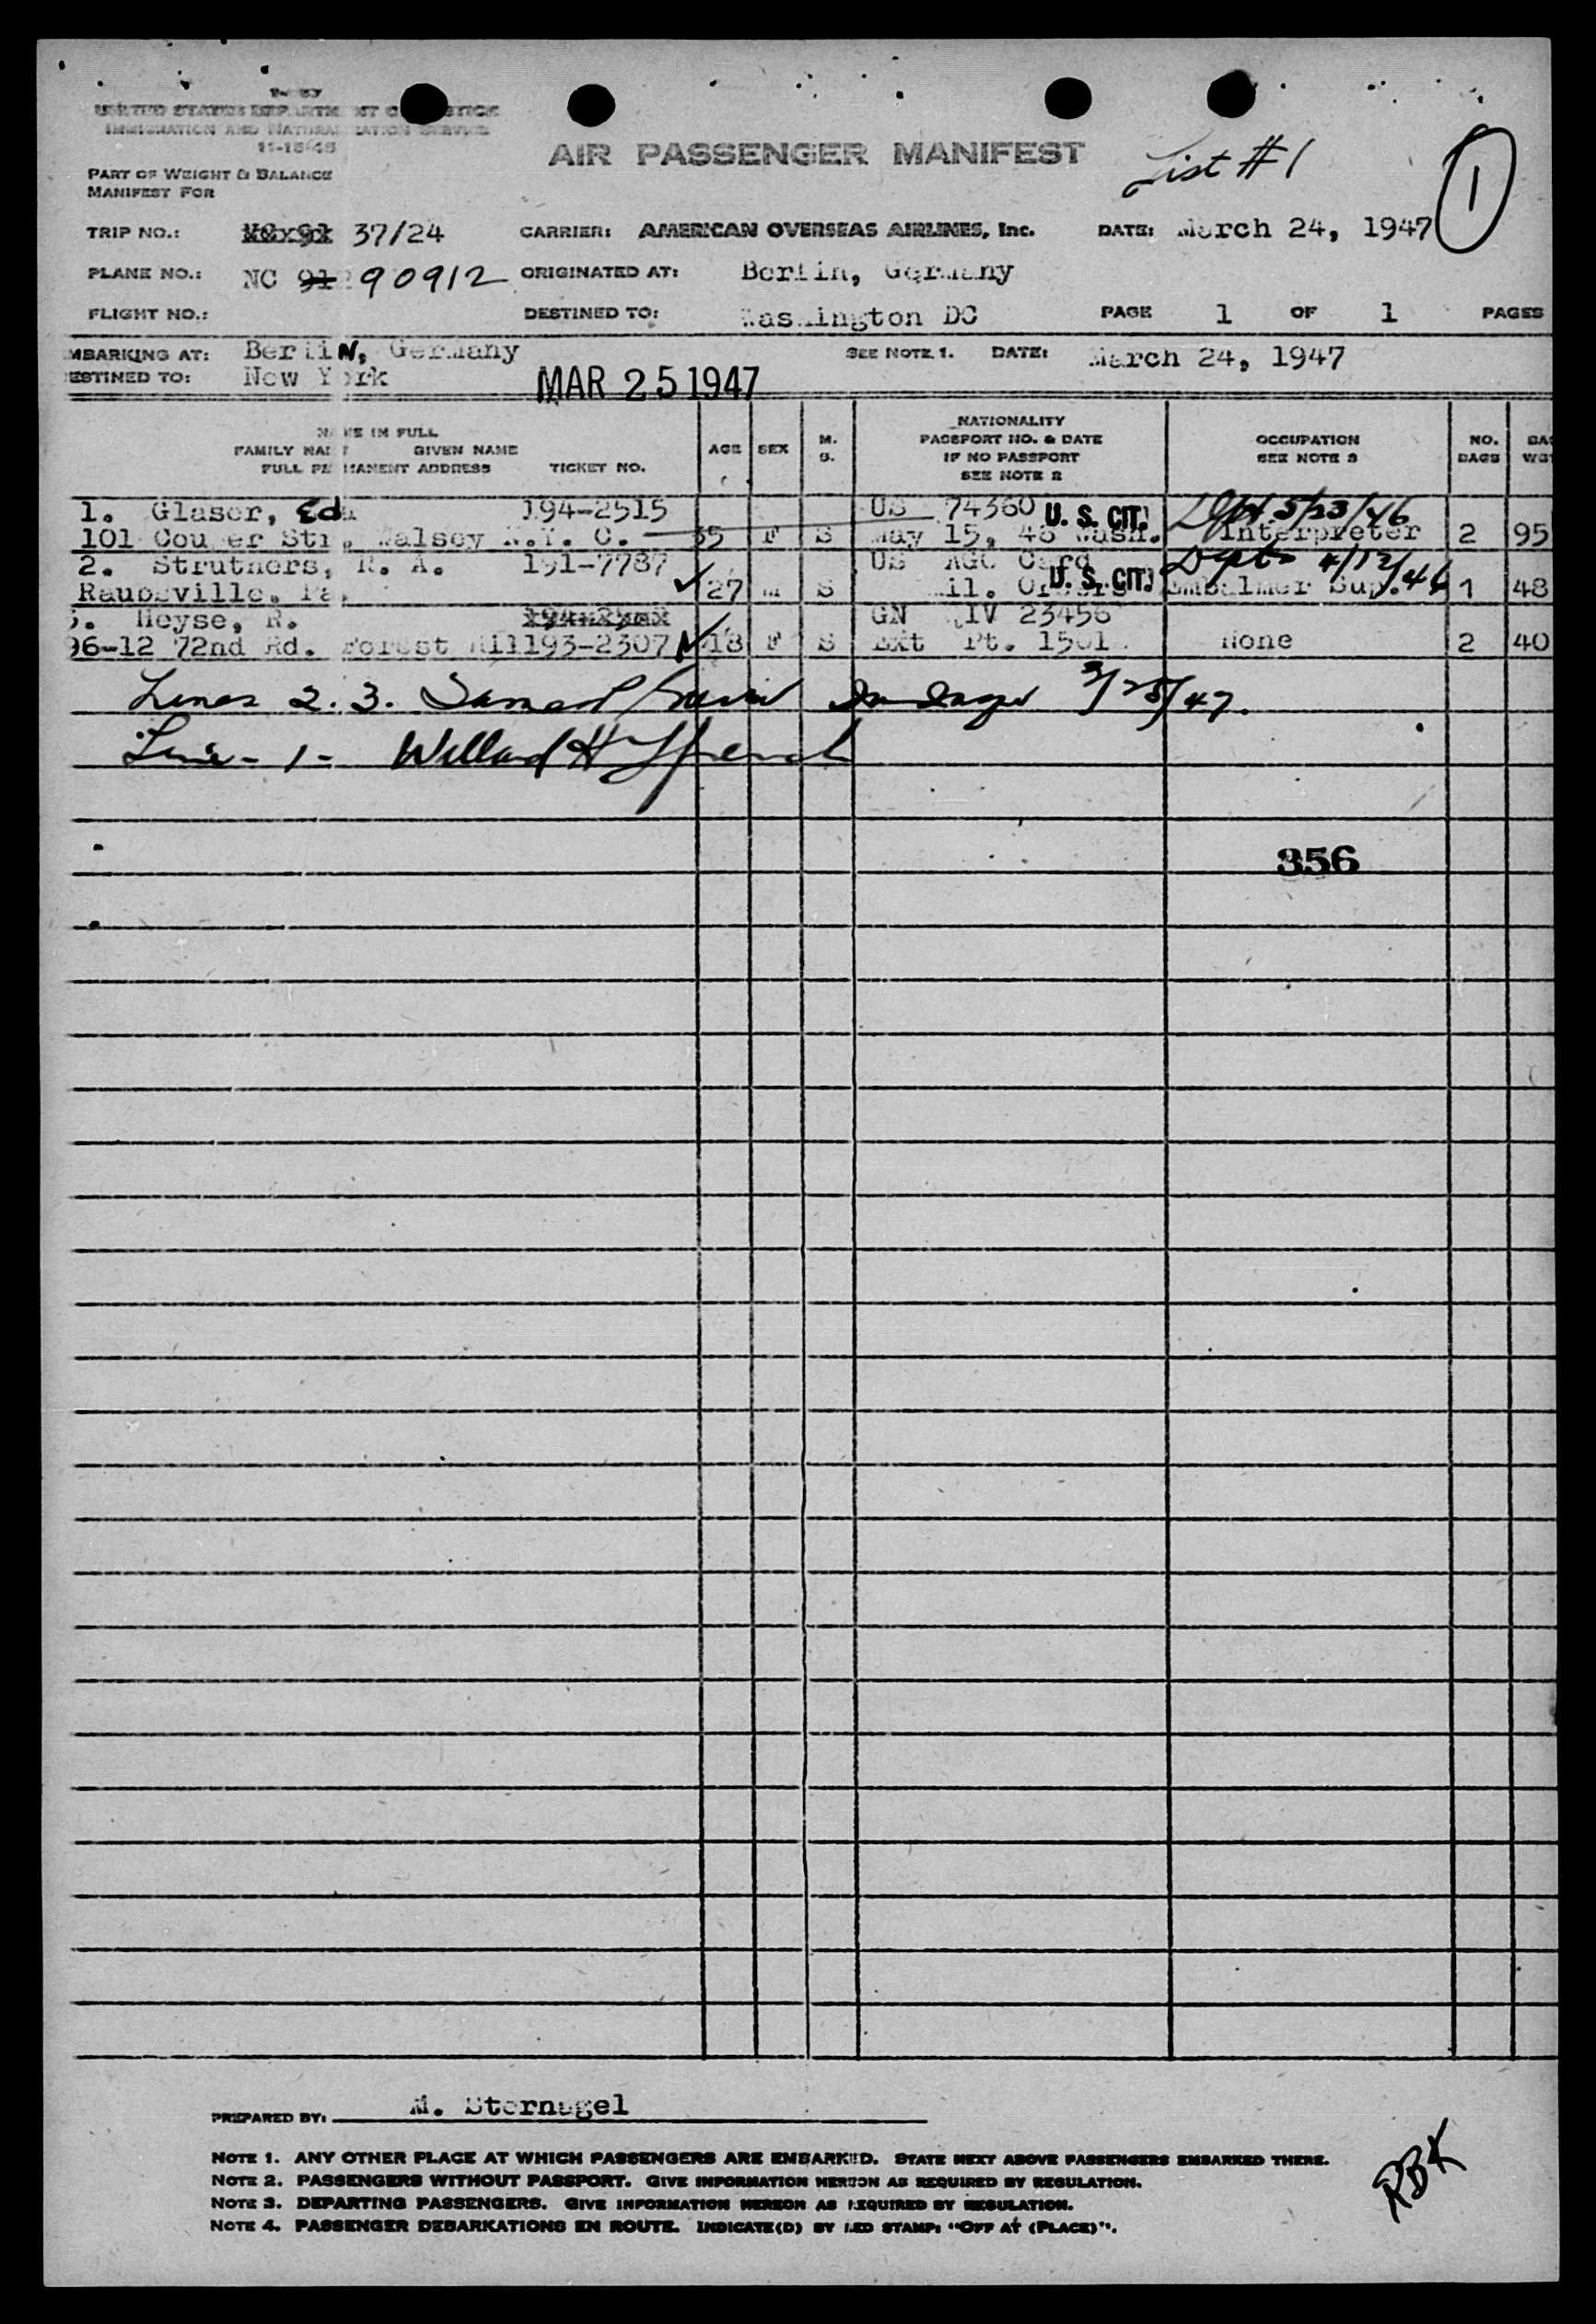 UNITED STATES DEPARTMENT OF JUSTICE
IMMIGRATION AND NATURALIZATION SERVICE
11-15-45
AIR PASSENGER MANIFEST
List #1
1
PART OF WEIGHT & BALANCE
MANIFEST FOR
TRIP NO.: 37/24 CARRIER: AMERICAN OVERSEAS AIRLINES, Inc. DATE: March 24, 1947
PLANE NO.: NC 91 90912 ORIGINATED AT: Berlin, Germany
FLIGHT NO.: DESTINED TO: Washington DC PAGE 1 OF 1 PAGES
MBARKING AT: Berlin, Germany SEE NOTE 1. DATE: March 24, 1947
ESTINED TO: New York MAR 25 1947
NAME IN FULL
FAMILY NAME GIVEN NAME
FULL PERMANENT ADDRESS TICKET NO. AGE SEX M. S. NATIONALITY PASSPORT NO. & DATE IF NO PASSPORT SEE NOTE 2 OCCUPATION SEE NOTE 3 NO. BAGS BAG WGT
1. Glaser, Eda 194-2515 US 74360 U. S. CIT. Dept 5/23/46
101 Str. Halsey N.Y. C. 35 F S May 15, 46 Wash. Interpreter 2 95
2. Struthers, R. A. 191-7787 US AGO Card U. S. CIT. Dept 4/12/46
Raubsville, Pa. 27 M S Mil. Orders Embalmer Sup. 1 48
3. Heyse, R. GN QIV 23456
96-12 72nd Rd. Forest Hill 193-2307 18 F S Ext Pt. 1501 None 2 40
Lines 2. 3. 3/25/47.
Line - 1 - Willard H
356
PREPARED BY: M. Sternagel
NOTE 1. ANY OTHER PLACE AT WHICH PASSENGERS ARE EMBARKED. STATE NEXT ABOVE PASSENGERS EMBARKED THERE.
NOTE 2. PASSENGERS WITHOUT PASSPORT. GIVE INFORMATION HEREON AS REQUIRED BY REGULATION.
NOTE 3. DEPARTING PASSENGERS. GIVE INFORMATION HEREON AS REQUIRED BY REGULATION.
NOTE 4. PASSENGER DEBARKATIONS EN ROUTE. INDICATE(D) BY RED STAMP: "OFF AT (PLACE)".
RBK